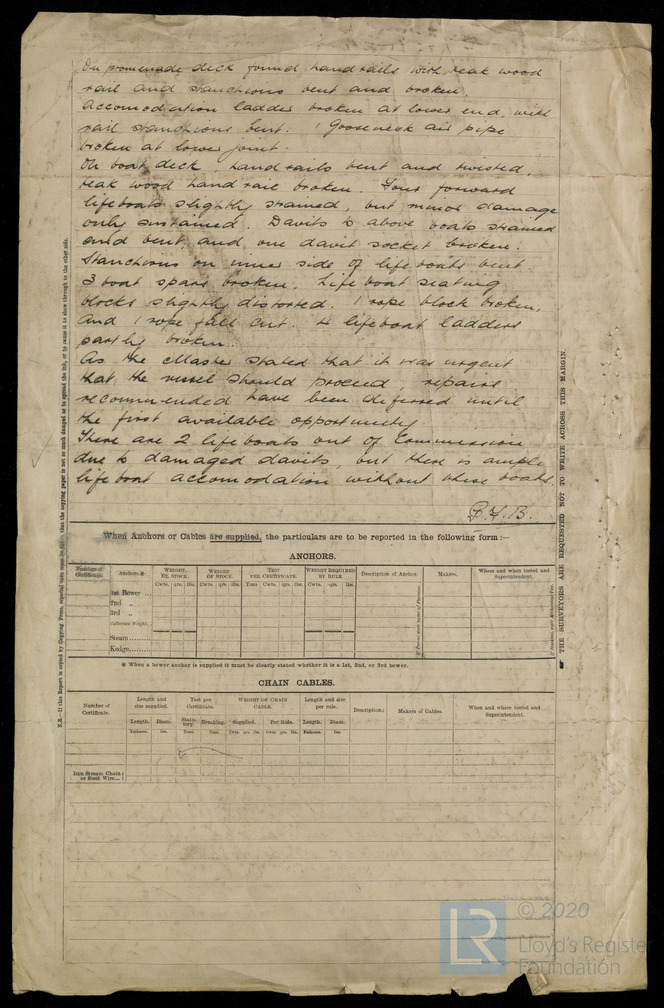 On promenade deck found handrails with teak wood
rail and stanchions bent and broken.
Accomodation ladder broken at lower end, with
rail stanchions bent. 1 Gooseneck air pipe
broken at lower joint.
On boat deck, handrails bent and twisted,
teak wood handrail broken. Four forward
lifeboats slightly strained, but minor damage
only sustained. Davits to above boats strained
and bent, and one davit socket broken.
Stanchions on inner side of lifeboats bent.
3 boat spars broken. Lifeboat seating
blocks slightly distorted. 1 rope block broken,
and 1 rope fall cut. 4 lifeboat ladders
partly broken.
As the Master stated that it was urgent
that the vessel should proceed, repairs
recommended have been deferred until
the first available opportunity.
There are 2 lifeboats out of Commission
due to damaged davits, but there is ample
lifeboat accomodation without these boats.
When Anchors or Cables are supplied, the particulars are to be reported in the following form:—
ANCHORS.
Number of Certificate. Anchors.* WEIGHT. EX. STOCK. WEIGHT OF STOCK. TEST PER CERTIFICATE. WEIGHT REQUIRED BY RULE. Description of Anchor. Makers. Where and when tested and Superintendent.
Cwts. qrs. lbs. Cwts. qrs. lbs. Tons. Cwts. qrs. lbs. Cwts. qrs. lbs.
1st Bower ...
2nd „
3rd „
Collective Weight.
Stream
Kedge
* When a bower anchor is supplied it must be clearly stated whether it is a 1st, 2nd, or 3rd bower.
CHAIN CABLES.
Number of Certificate. Length and size supplied. Test per Certificate. WEIGHT OF CHAIN CABLE. Length and size per rule. Description. Makers of Cables. When and where tested and Superintendent.
Length. Diam. Statutory. Breaking. Supplied. Per Rule. Length. Diam.
Fathoms. Ins. Tons. Tons. Cwts. qrs. lbs. Cwts. qrs. lbs. Fathoms. Ins.
Iron Stream Chain
or Steel Wire
N.B.—If this Report is copied by Copying Press, especial care must be taken that the copying paper is not so much damped as to spread the ink, or to cause it to show through to the other side.
THE SURVEYORS ARE REQUESTED NOT TO WRITE ACROSS THIS MARGIN.
LR
© 2020
Lloyd's Register
Foundation